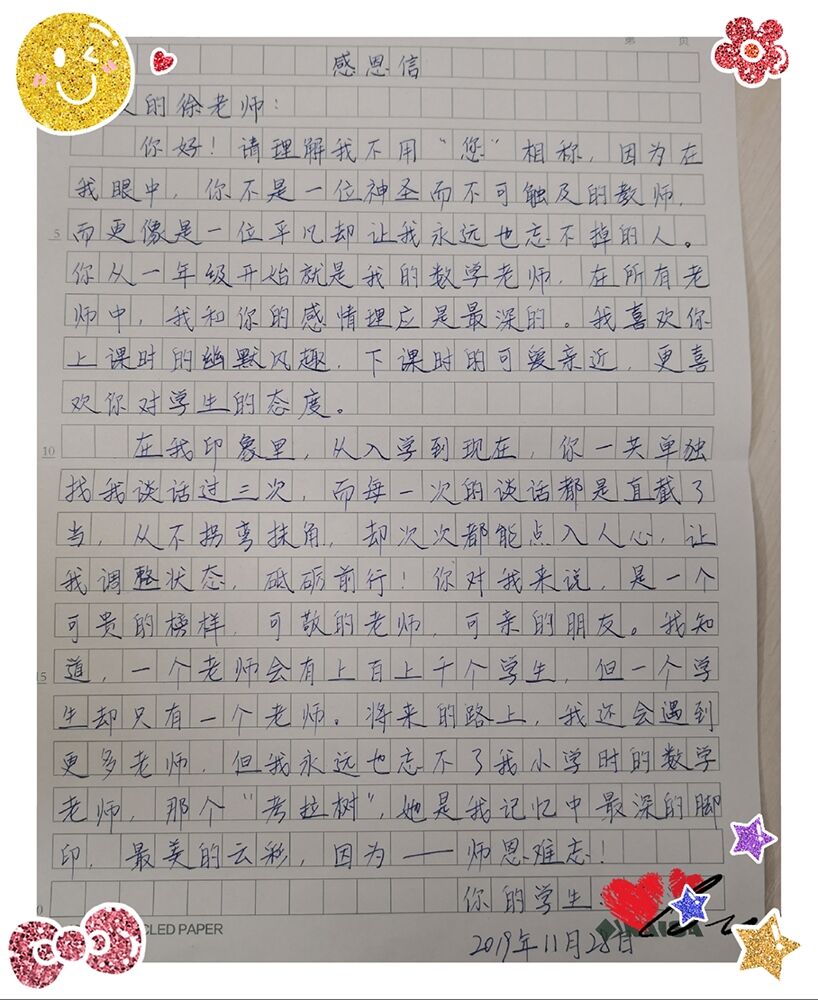 第 页
感恩信
人的徐老师：
你好！请理解我不用“您”相称，因为在
我眼中，你不是一位神圣而不可触及的教师，
5
而更像是一位平凡却让我永远也忘不掉的人。
你从一年级开始就是我的数学老师，在所有老
师中，我和你的感情理应是最深的。我喜欢你
上课时的幽默风趣，下课时的可爱亲近，更喜
欢你对学生的态度。
10
在我印象里，从入学到现在，你一共单独
找我谈话过三次，而每一次的谈话都是直截了
当，从不拐弯抹角，却次次都能点入人心，让
我调整状态，砥砺前行！你对我来说，是一个
可贵的榜样，可敬的老师，可亲的朋友。我知
15
道，一个老师会有上百上千个学生，但一个学
生却只有一个老师。将来的路上，我还会遇到
更多老师，但我永远也忘不了我小学时的数学
老师，那个“考拉树”，她是我记忆中最深的脚
印，最美的云彩，因为——师恩难忘！
你的学生：
CLED PAPER
2019年11月28日